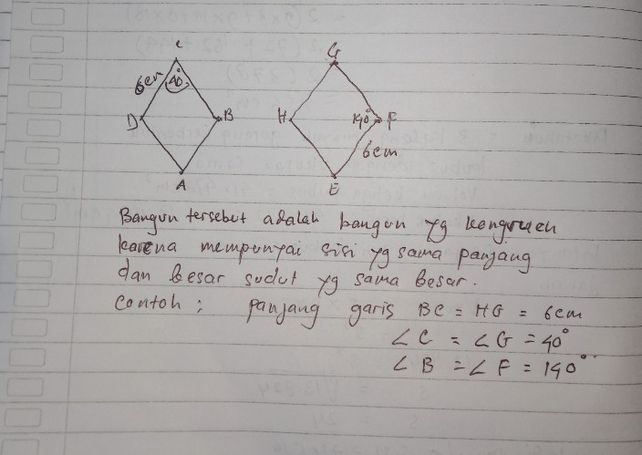 C
G
6cm
40°
D
B
H
140°
F
6cm
A
E
Bangun tersebut adalah bangun yg kongruen
karena mempunyai sisi yg sama panjang
dan besar sudut yg sama besar.
Contoh : panjang garis BC = HG = 6cm
∠C = ∠G = 40°
∠B = ∠F = 140°